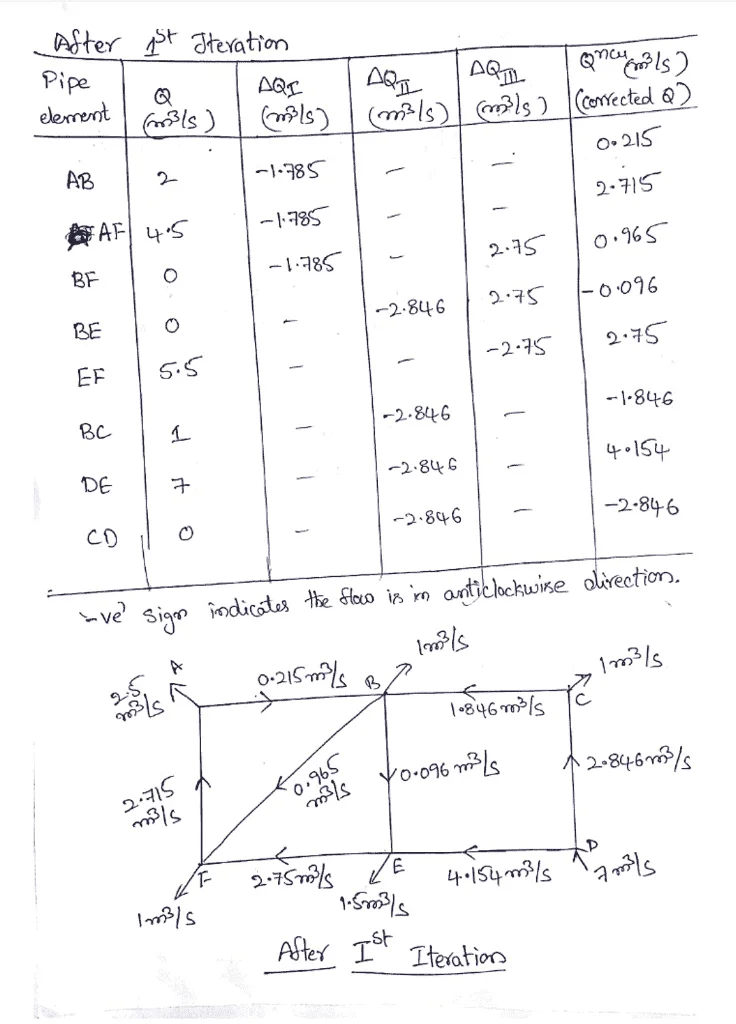 After 1st Iteration
Pipe element | Q (m³/s) | ΔQI (m³/s) | ΔQII (m³/s) | ΔQIII (m³/s) | Qnew (m³/s) (corrected Q)
AB | 2 | -1.785 | – | – | 0.215
AF | 4.5 | -1.785 | – | – | 2.715
BF | 0 | -1.785 | – | 2.75 | 0.965
BE | 0 | – | -2.846 | 2.75 | -0.096
EF | 5.5 | – | – | -2.75 | 2.75
BC | 1 | – | -2.846 | – | -1.846
DE | 7 | – | -2.846 | – | 4.154
CD | 0 | – | -2.846 | – | -2.846
'-ve' sign indicates the flow is in anticlockwise direction.
1m³/s
A 0.215m³/s B 1m³/s
2.5 m³/s 1.846m³/s C
2.715 m³/s 0.965 m³/s 0.096 m³/s 2.846m³/s
F 2.75m³/s E 4.154m³/s D 7m³/s
1m³/s 1.5m³/s
After Ist Iteration